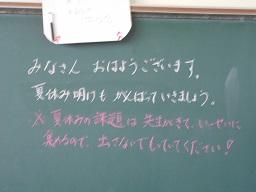 みなさん おはようございます。
夏休み明けも がんばっていきましょう。
※ 夏休みの課題は 先生がきて、いっせいに
集めるので、出さないでもっていてください!